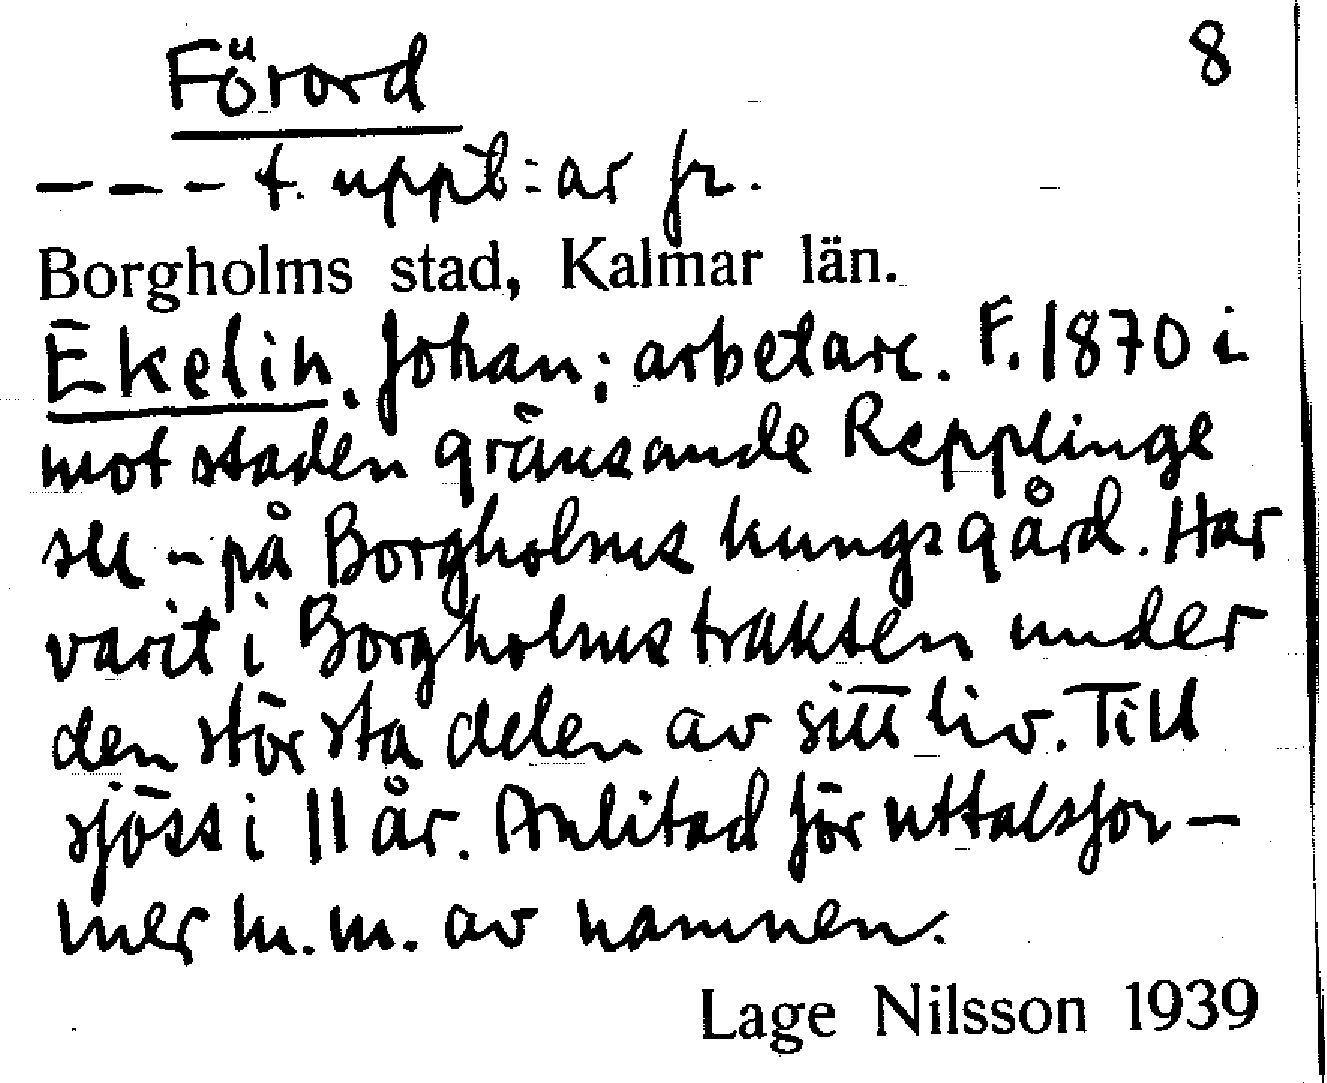 Förord 8
– – – t. uppt:ar fr.
Borgholms stad, Kalmar län.
Ekelin, Johan; arbetare. F. 1870 i
mot staden gränsande Repplinge
sn – på Borgholms kungsgård. Har
varit i Borgholmstrakten under
den största delen av sitt liv. Till
sjöss i 11 år. Anlitad för uttalsfor-
mer m.m. av namnen.
Lage Nilsson 1939